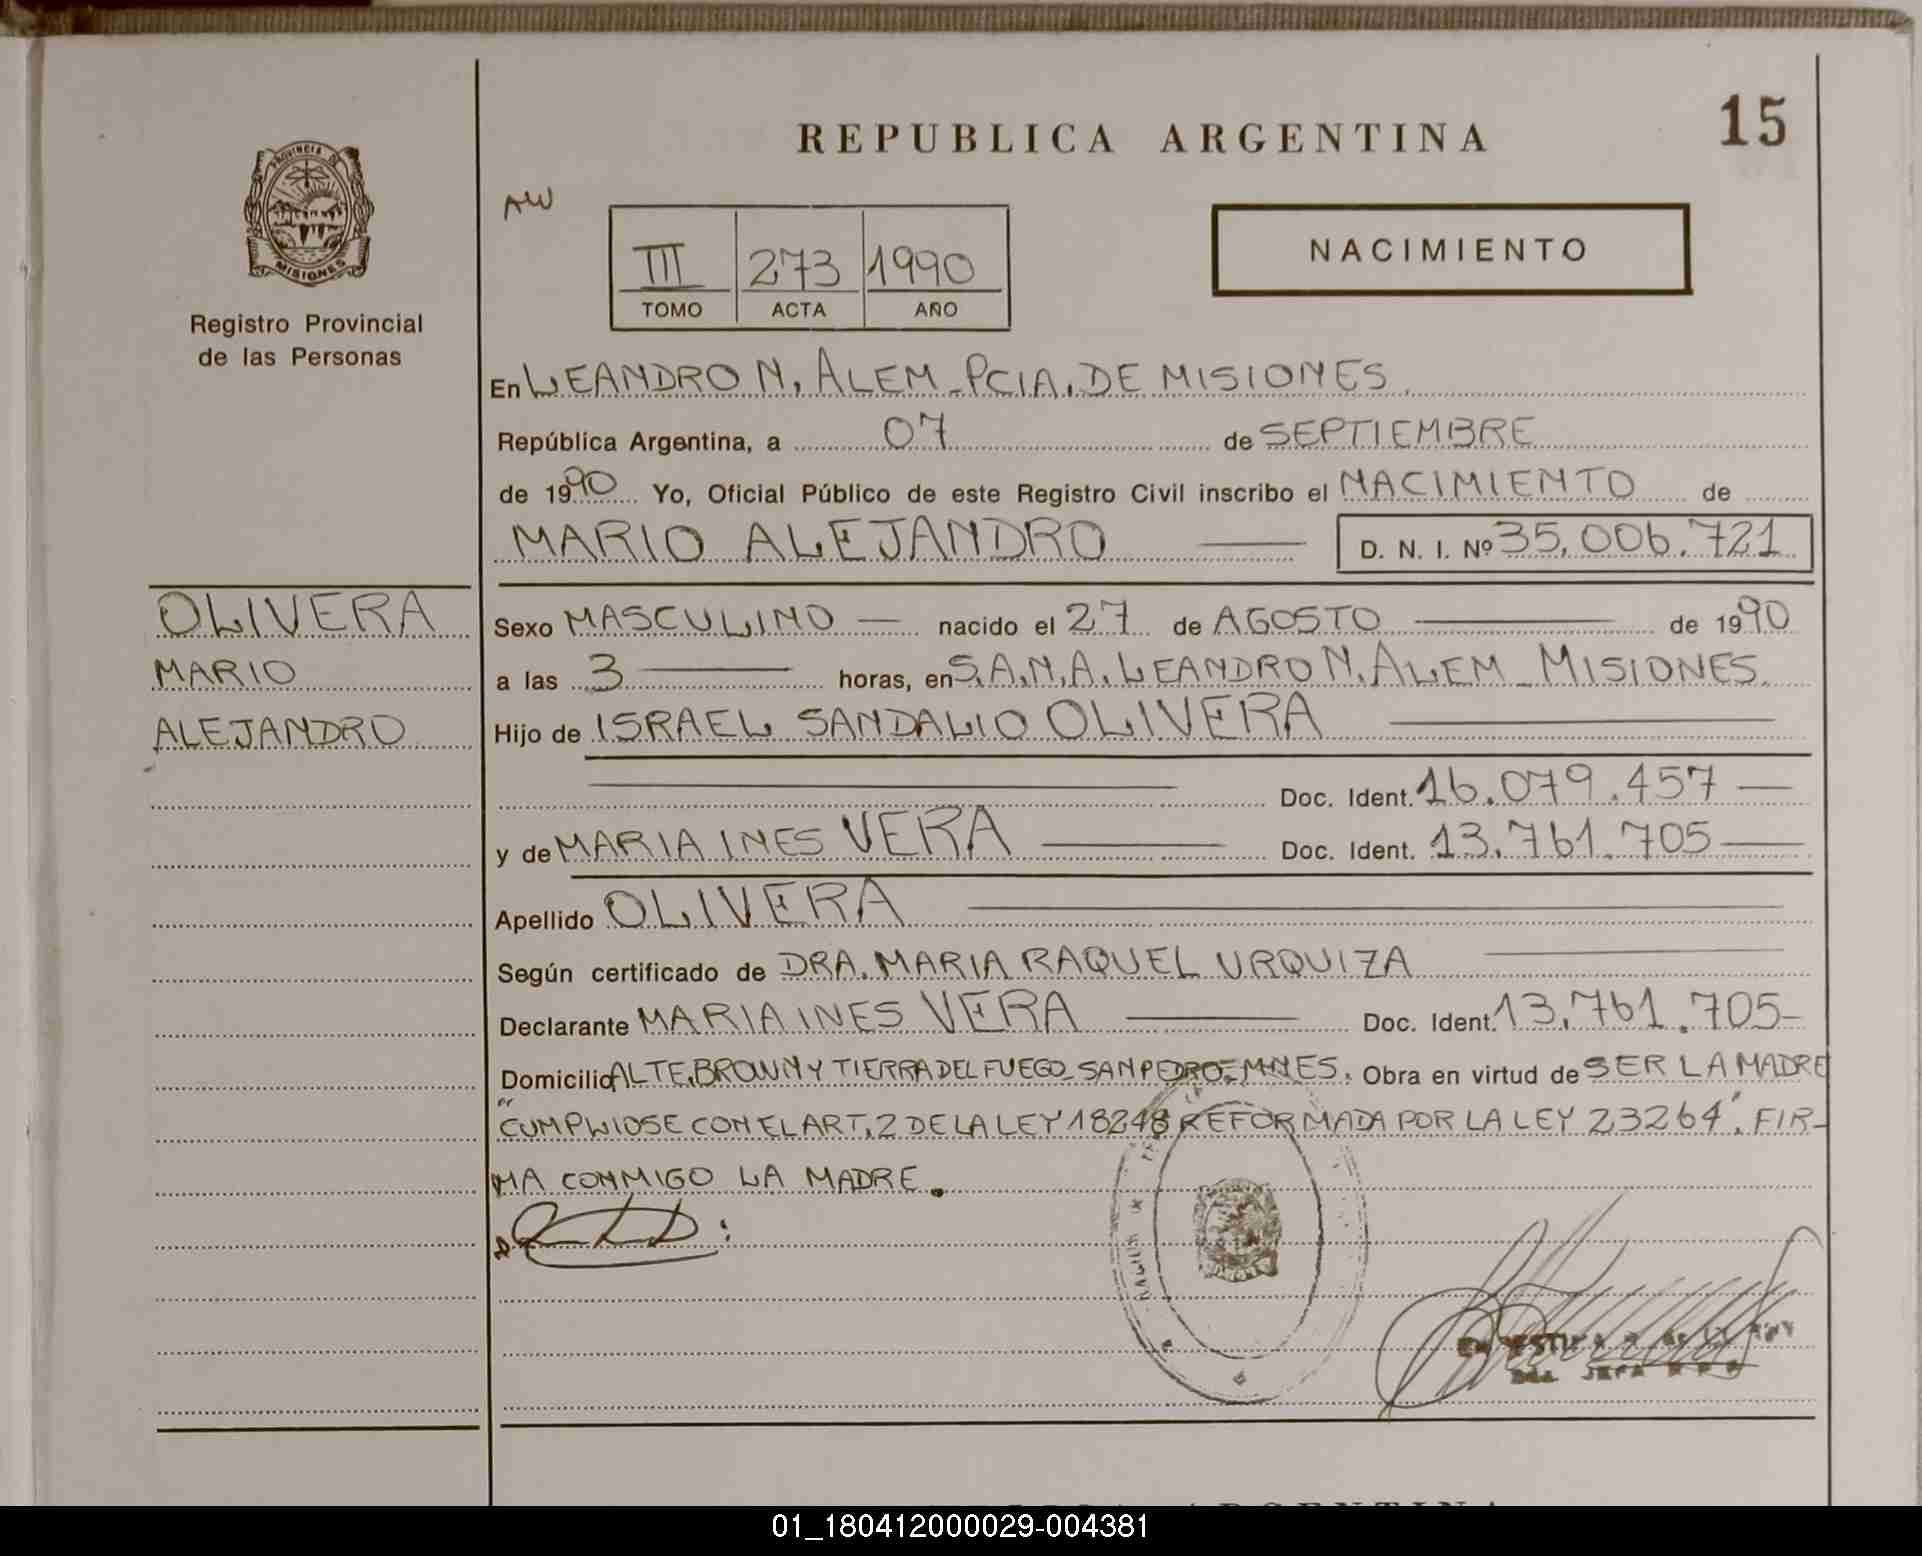 REPUBLICA ARGENTINA
15
PROVINCIA DE
MISIONES
Registro Provincial
de las Personas
AW
III 273 1990
TOMO ACTA AÑO
NACIMIENTO
En LEANDRO N. ALEM - PCIA. DE MISIONES.
República Argentina, a 07 de SEPTIEMBRE
de 1990 Yo, Oficial Público de este Registro Civil inscribo el NACIMIENTO de
MARIO ALEJANDRO — D. N. I. Nº 35.006.721
OLIVERA
MARIO
ALEJANDRO
Sexo MASCULINO — nacido el 27 de AGOSTO — de 1990
a las 3 — horas, en S.A.M.A. LEANDRO N. ALEM - MISIONES.
Hijo de ISRAEL SANDALIO OLIVERA —
— Doc. Ident. 16.079.457 —
y de MARIA INES VERA — Doc. Ident. 13.761.705 —
Apellido OLIVERA —
Según certificado de DRA. MARIA RAQUEL URQUIZA —
Declarante MARIA INES VERA — Doc. Ident. 13.761.705-
Domicilio ALTE. BROWN Y TIERRA DEL FUEGO - SAN PEDRO - MNES. Obra en virtud de SER LA MADRE
"CUMPLIOSE CON EL ART. 2 DE LA LEY 18248 REFORMADA POR LA LEY 23264". FIR-
MA CONMIGO LA MADRE.
01_180412000029-004381